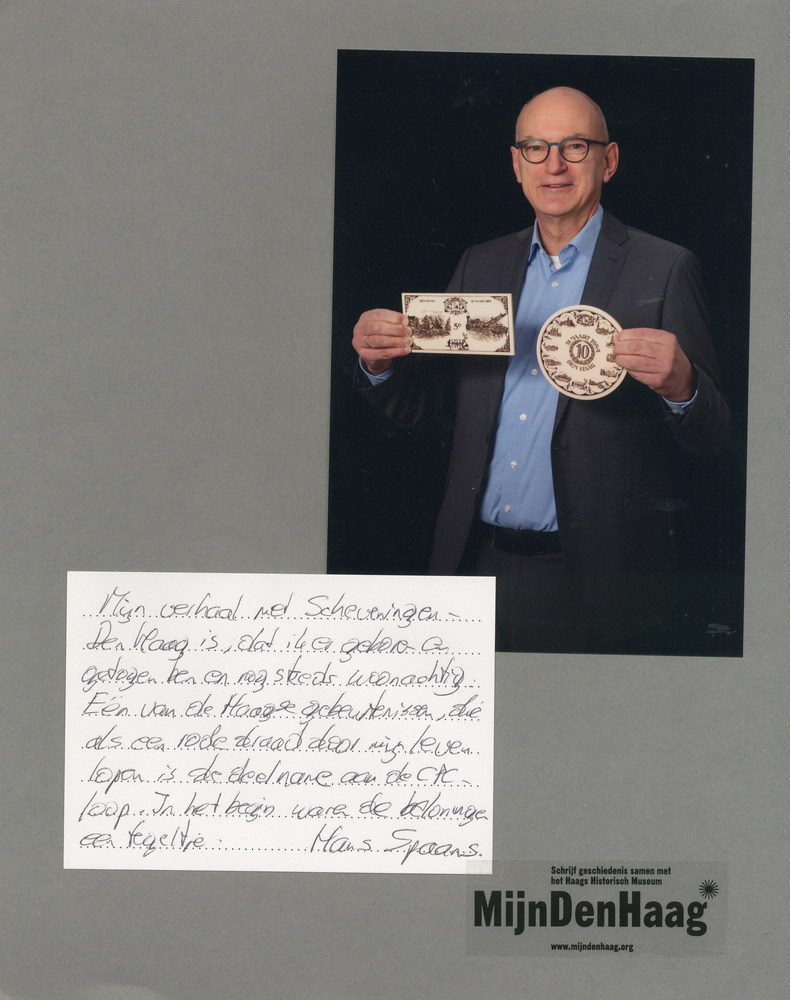 DEN HAAG
5e
31 MAART 1984
10
DEN HAAG
Mijn verhaal met Scheveningen -
Den Haag is, dat ik er geboren en
getogen ben en nog steeds woonachtig.
Eén van de Haagse gebeurtenissen, die
als een rode draad door mijn leven
lopen is de deelname aan de CPC-
loop. In het begin waren de beloningen
een tegeltje. Hans Spaans.
Schrijf geschiedenis samen met
het Haags Historisch Museum
MijnDenHaag
www.mijndenhaag.org